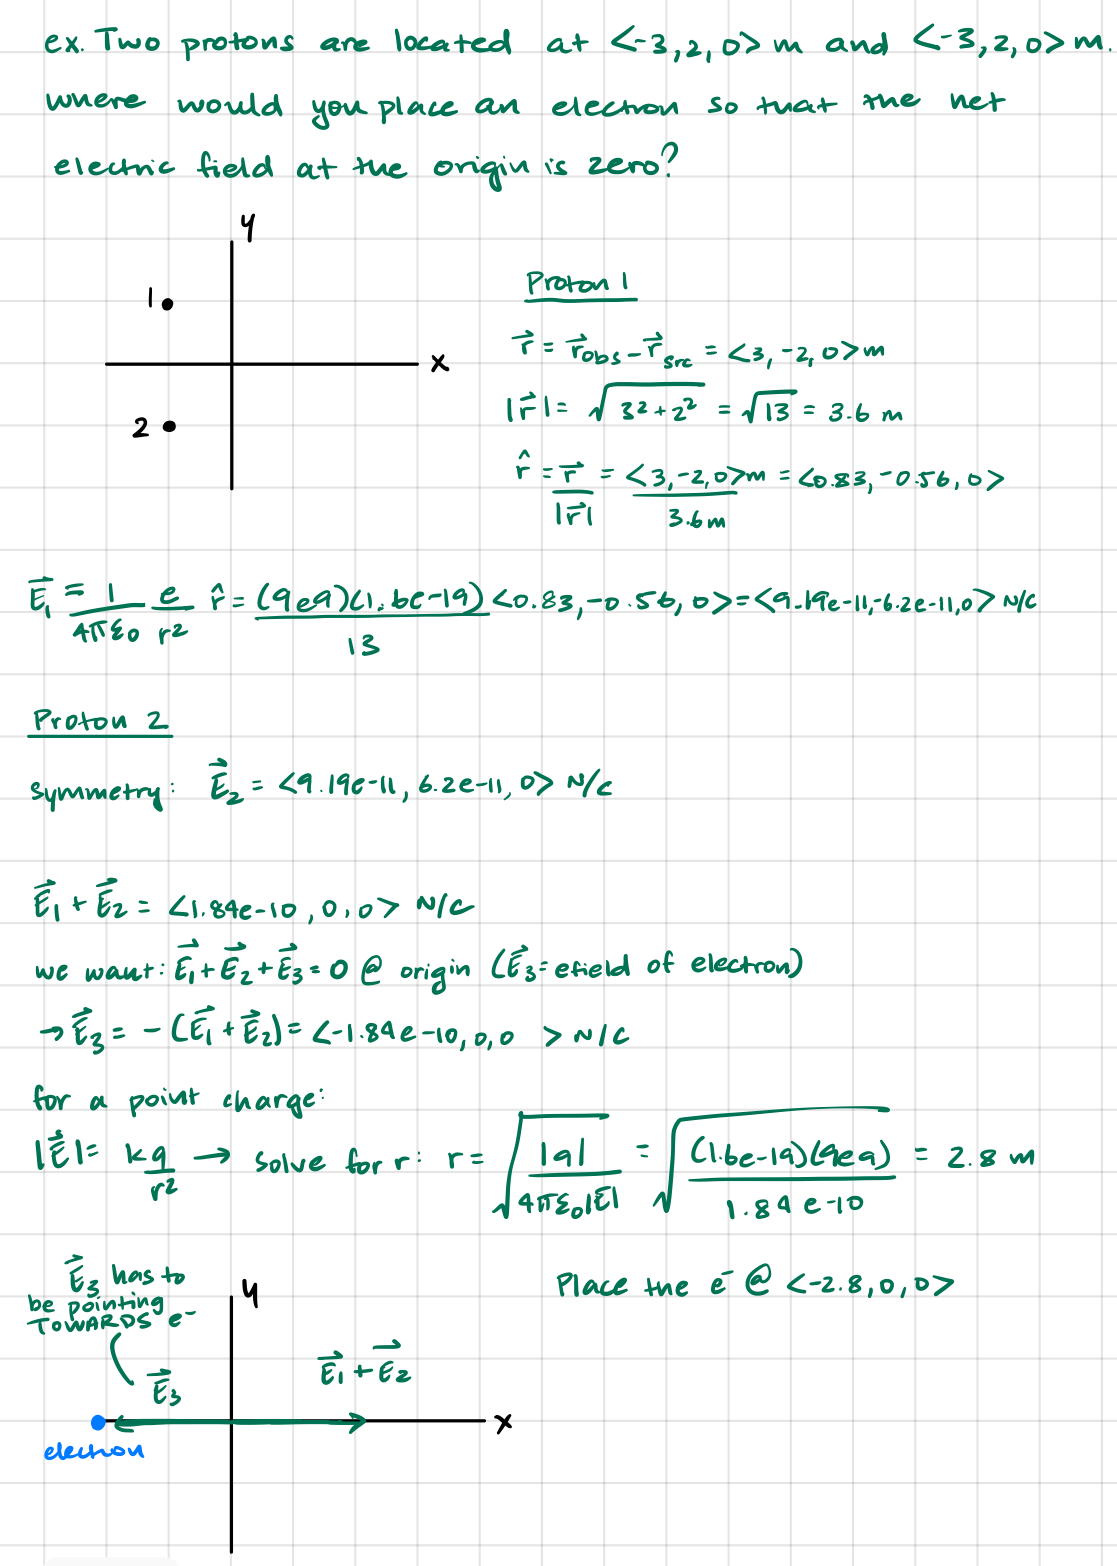 ex. Two protons are located at <-3,2,0> m and <-3,2,0> m.
where would you place an electron so that the net
electric field at the origin is zero?
y
1
x
2
Proton 1
r⃗ = r⃗obs - r⃗src = <3, -2, 0> m
|r⃗| = √(3² + 2²) = √13 = 3.6 m
r̂ = r⃗/|r⃗| = <3, -2, 0>m/3.6m = <0.83, -0.56, 0>
E⃗₁ = 1/(4πε₀) e/r² r̂ = (9e9)(1.6e-19)/13 <0.83, -0.56, 0> = <9.19e-11, -6.2e-11, 0> N/C
Proton 2
symmetry: E⃗₂ = <9.19e-11, 6.2e-11, 0> N/C
E⃗₁ + E⃗₂ = <1.84e-10, 0, 0> N/C
we want: E⃗₁ + E⃗₂ + E⃗₃ = 0 @ origin (E⃗₃ = efield of electron)
→ E⃗₃ = - (E⃗₁ + E⃗₂) = <-1.84e-10, 0, 0 > N/C
for a point charge:
|E⃗| = kq/r² → solve for r: r = √(|q|/(4πε₀|E⃗|)) = √((1.6e-19)(9e9)/1.84e-10) = 2.8 m
Place the e⁻ @ <-2.8, 0, 0>
E⃗₃ has to
be pointing
TOWARDS e⁻
y
E⃗₃
E⃗₁ + E⃗₂
x
electron